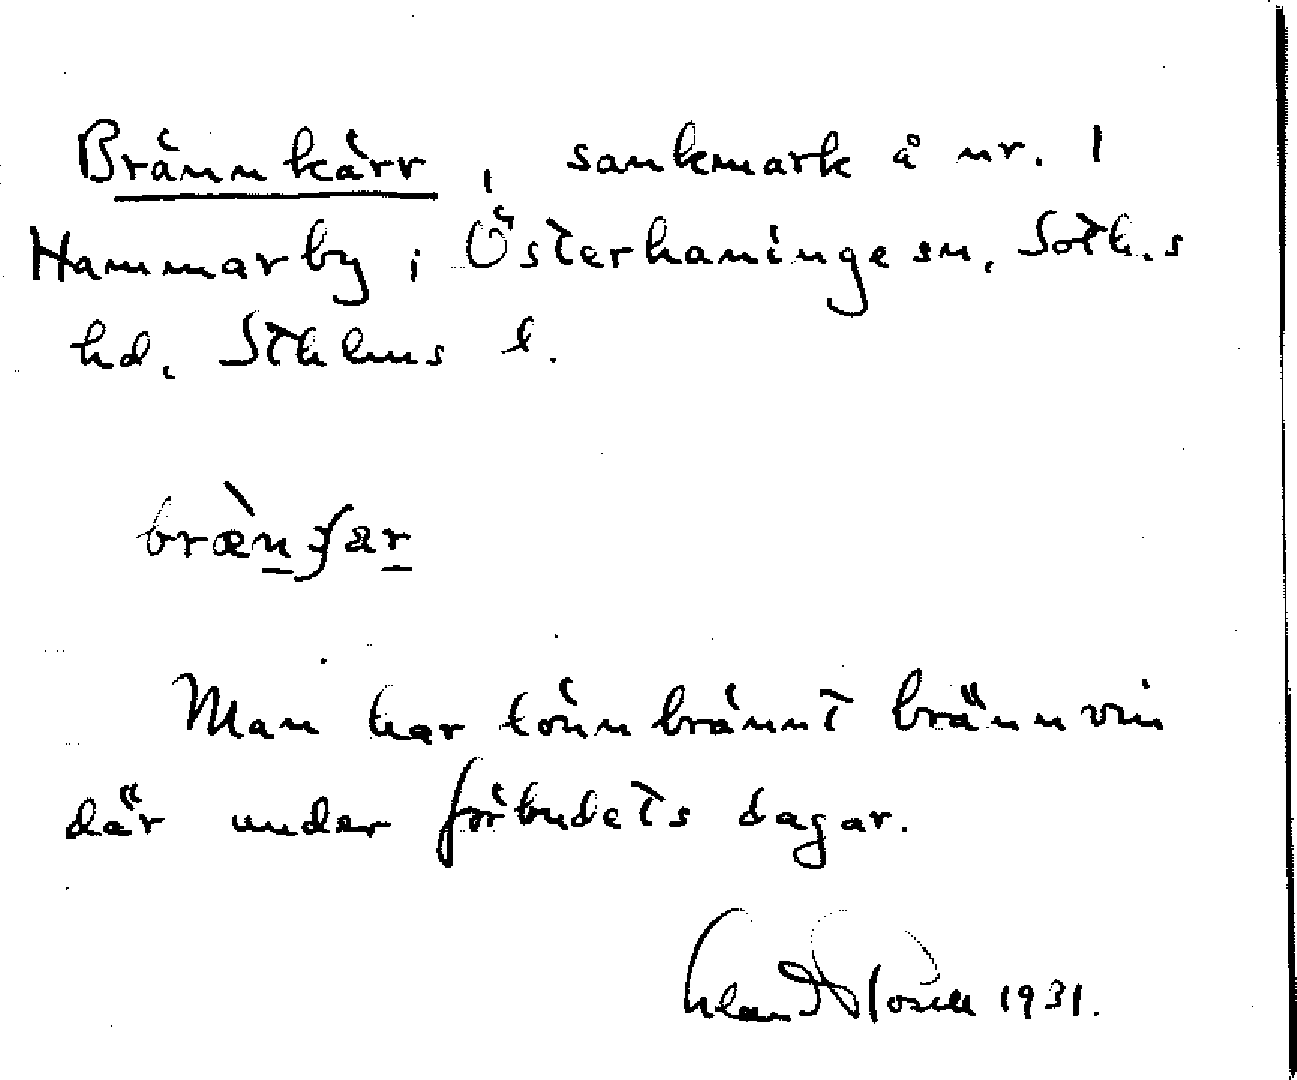 Brännkärr, sankmark å nr. 1
Hammarby i Österhaninge sn, Soth.s
hd, Sthlms l.
Man har lönnbrännt brännvin
där under förbudets dagar.
1931.